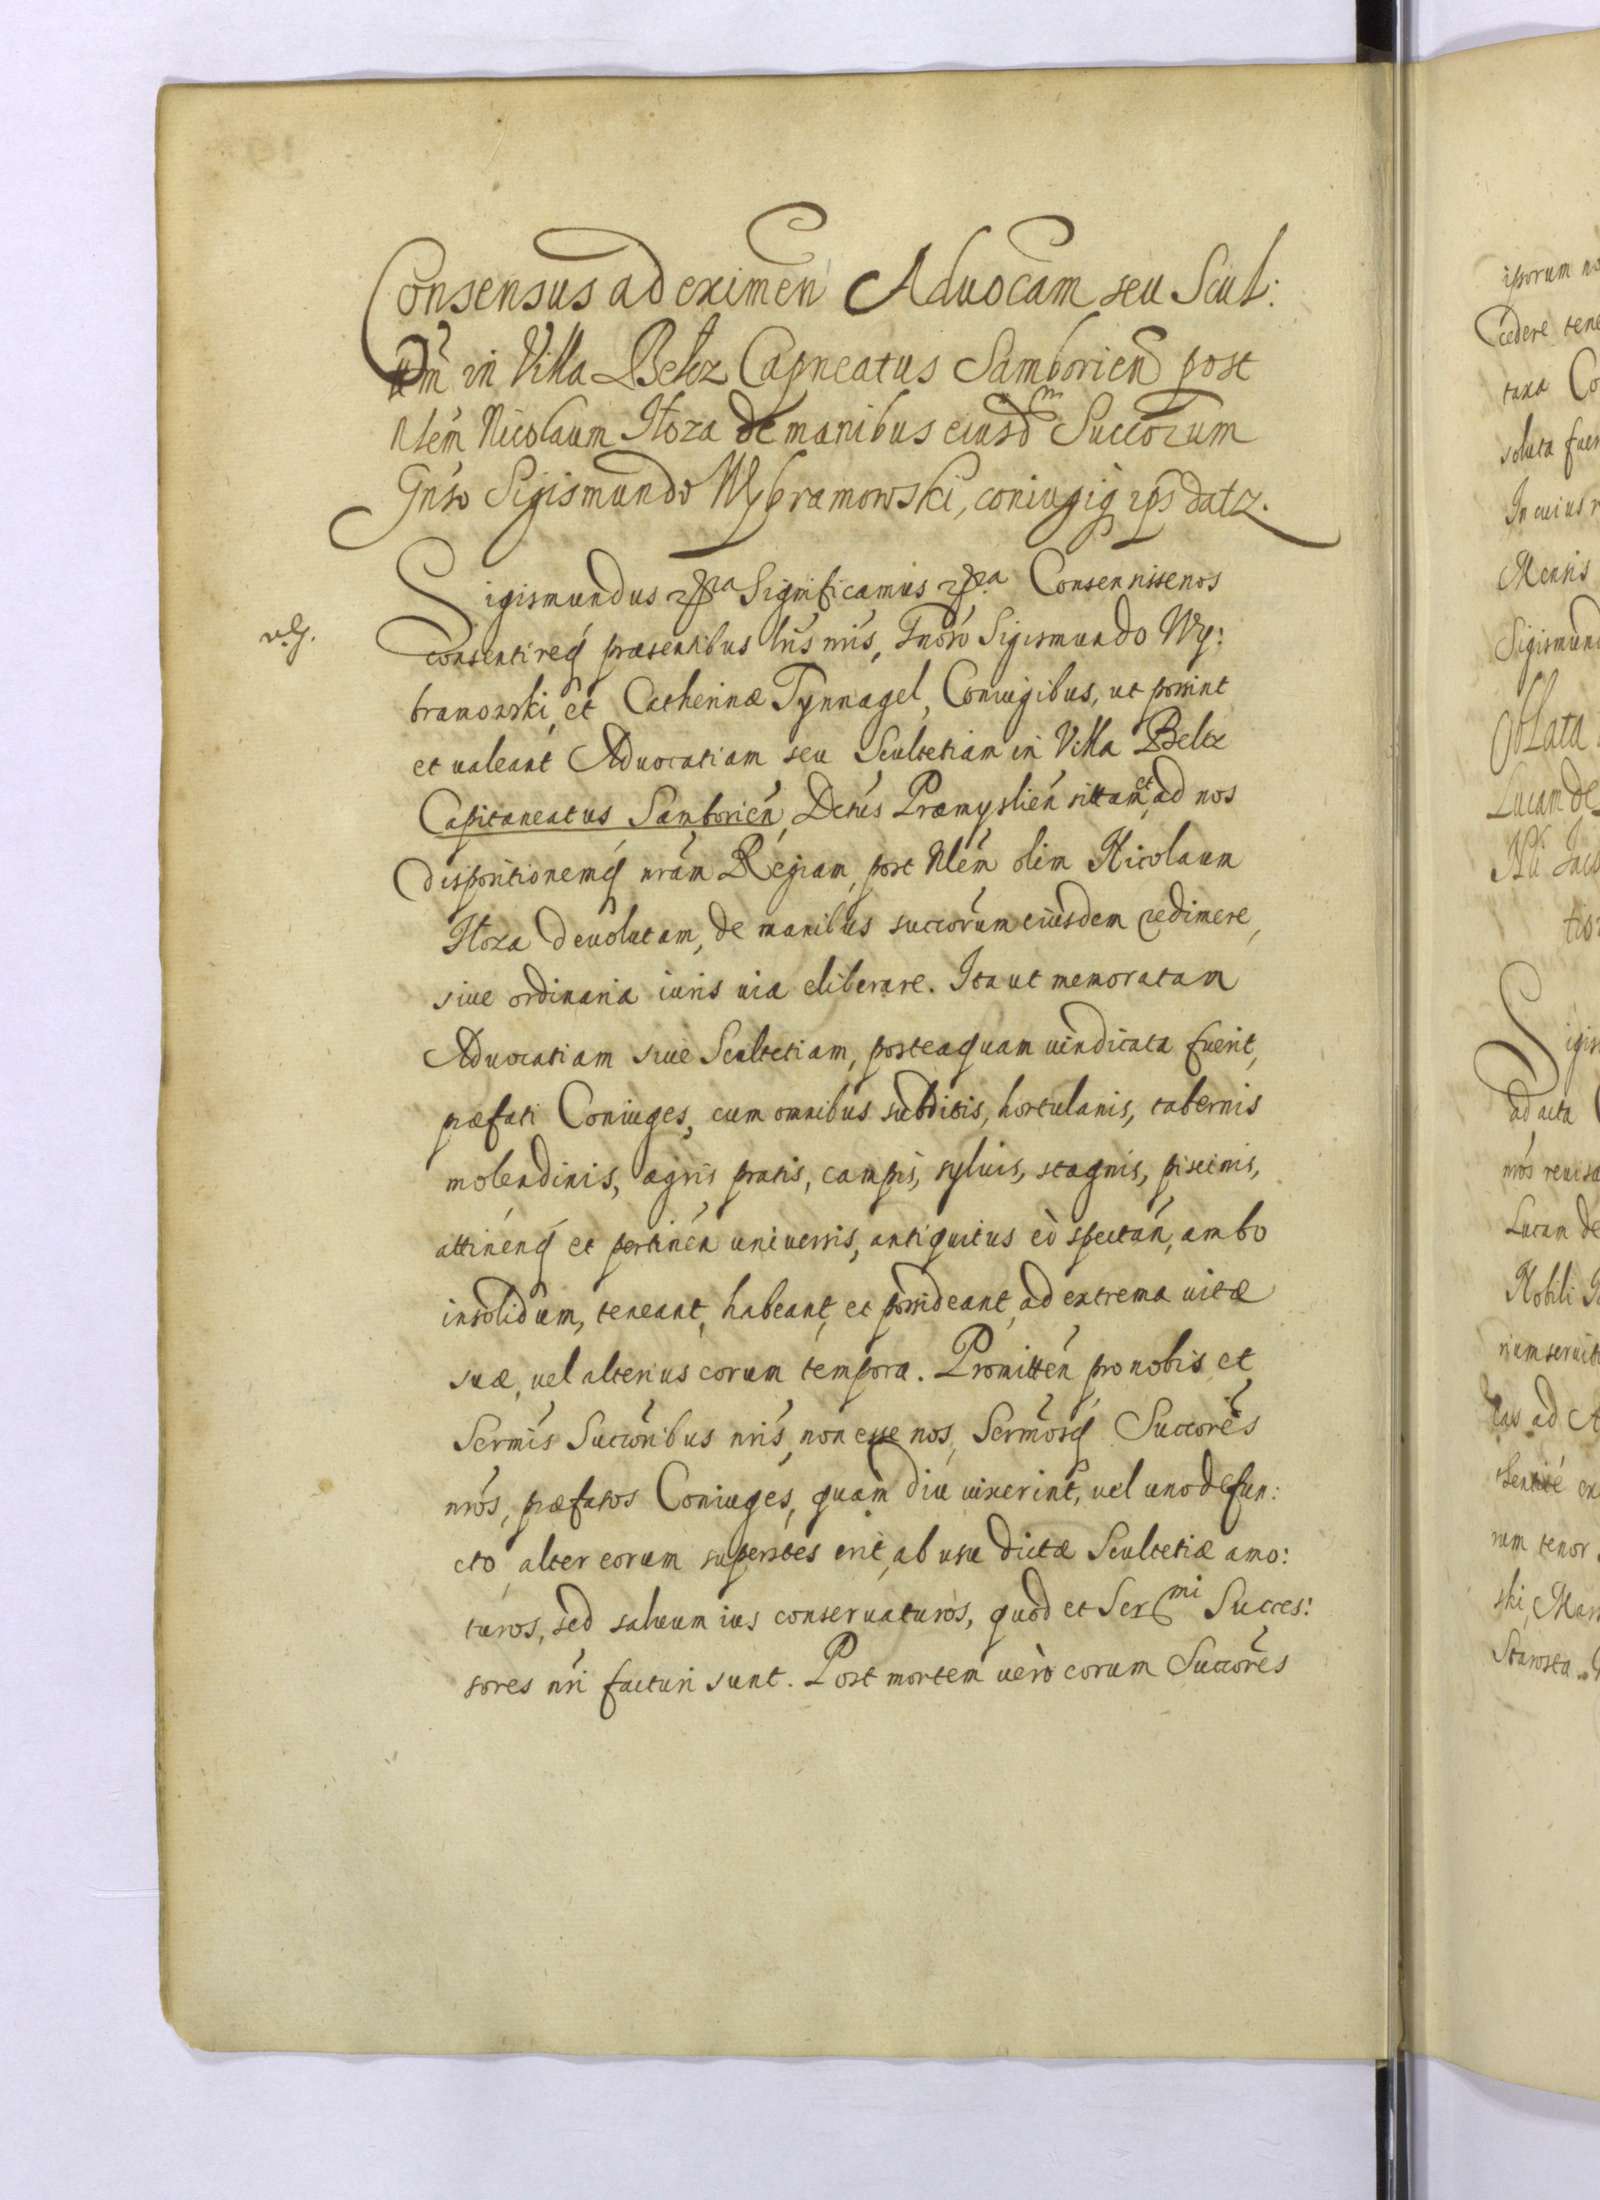 Consensus ad eximen̄ Aduocam̄ seu Scul:
am̄ in Villa Beltz Capneatus Samborien̄ post
Nlem̄ Nicolaum Hoza de manibus eiusd^m Succorum
Gnso Sigismundo Wybramowski, coniugiq̨ ips datz.
Sigismundus &^ra Significamus &^ra Consensisse nos
vlg.
consentireq̨ præsentibus lris nris, Gnoso Sigismundo Wy:
bramowski, et Catherinæ Tynnagel, Coniugibus, ut possint
et ualeant Aduocatiam seu Scultetiam in Villa Beltz
Capitaneatus Samborien̄, Dctus Præmyslien̄ sittam, et ad nos
dispositionemq̨ nram Regiam, post Nlem̄ olim Nicolaum
Hoza deuolutam, de manibus succorum eiusdem redimere,
siue ordinaria iuris uia eliberare. Ita ut memoratam
Aduocatiam siue Scultetiam, posteaquam uindicata fuerit,
præfati Coniuges, cum omnibus subditis, hortulanis, tabernis
molendinis, agris pratis, campis, syluis, stagnis, piscinis,
attinen̄q̨ et pertinen̄ uniuersis, antiquitus eò spectan̄, ambo
insolidum, teneant, habeant, et possideant, ad extrema uitæ
suæ, uel alterius eorum tempora. Promitten̄ pro nobis et
Sermis Succoribus nris, non esse nos, Sermosq̨ Succores
nros, præfatos Coniuges, quàm diu uixerint, uel uno defun:
cto, alter eorum superstes erit, ab usu dictæ Scultetiæ amo:
turos, sed saluum ius conseruaturos, quod et Ser^mi Succes:
sores nri facturi sunt. Post mortem uerò eorum Succores